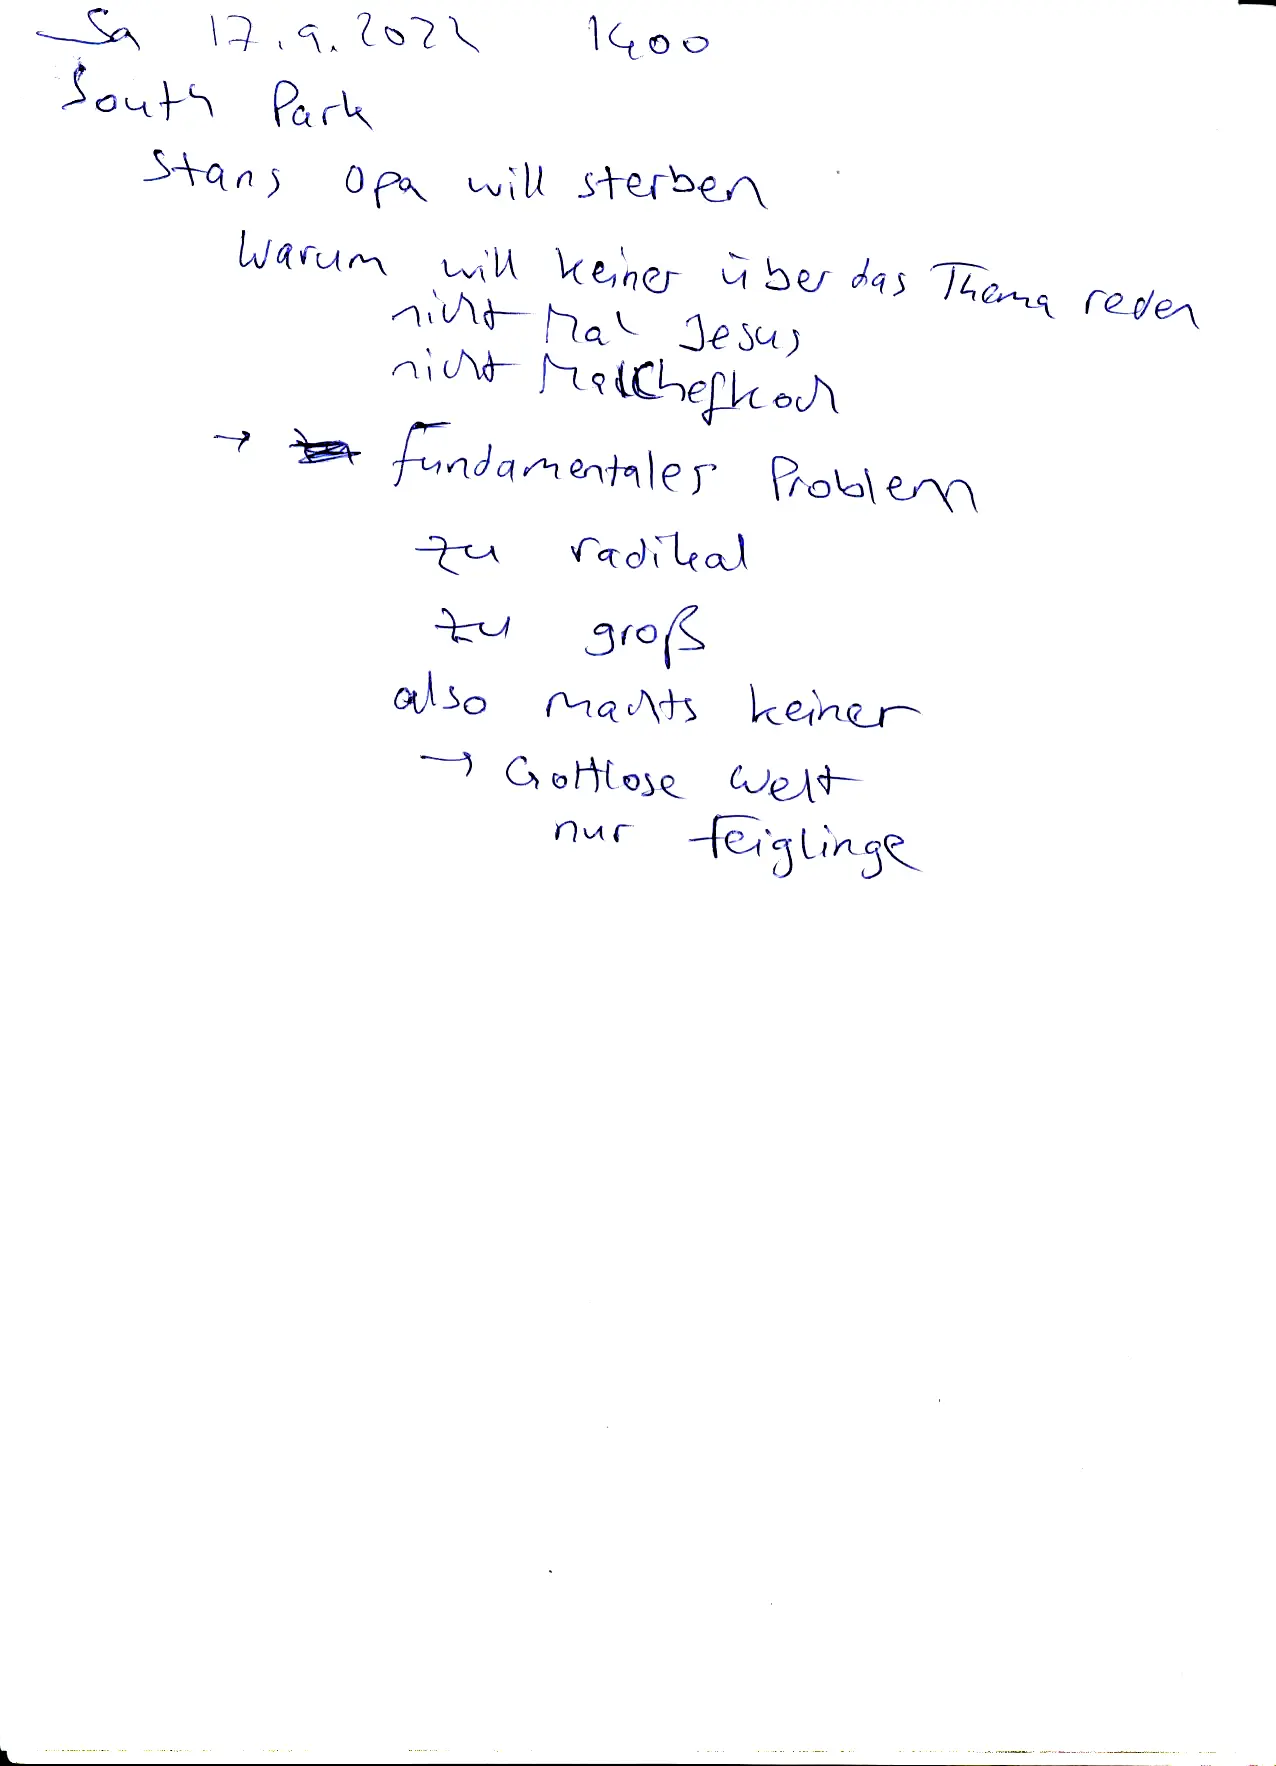 Sa 17.9.2022 1400
South Park
Stans Opa will sterben
Warum will keiner über das Thema reden
nicht Mal Jesus
nicht Mal Chefkoch
→ fundamentales Problem
zu radikal
zu groß
also machts keiner
→ Gottlose Welt
nur Feiglinge